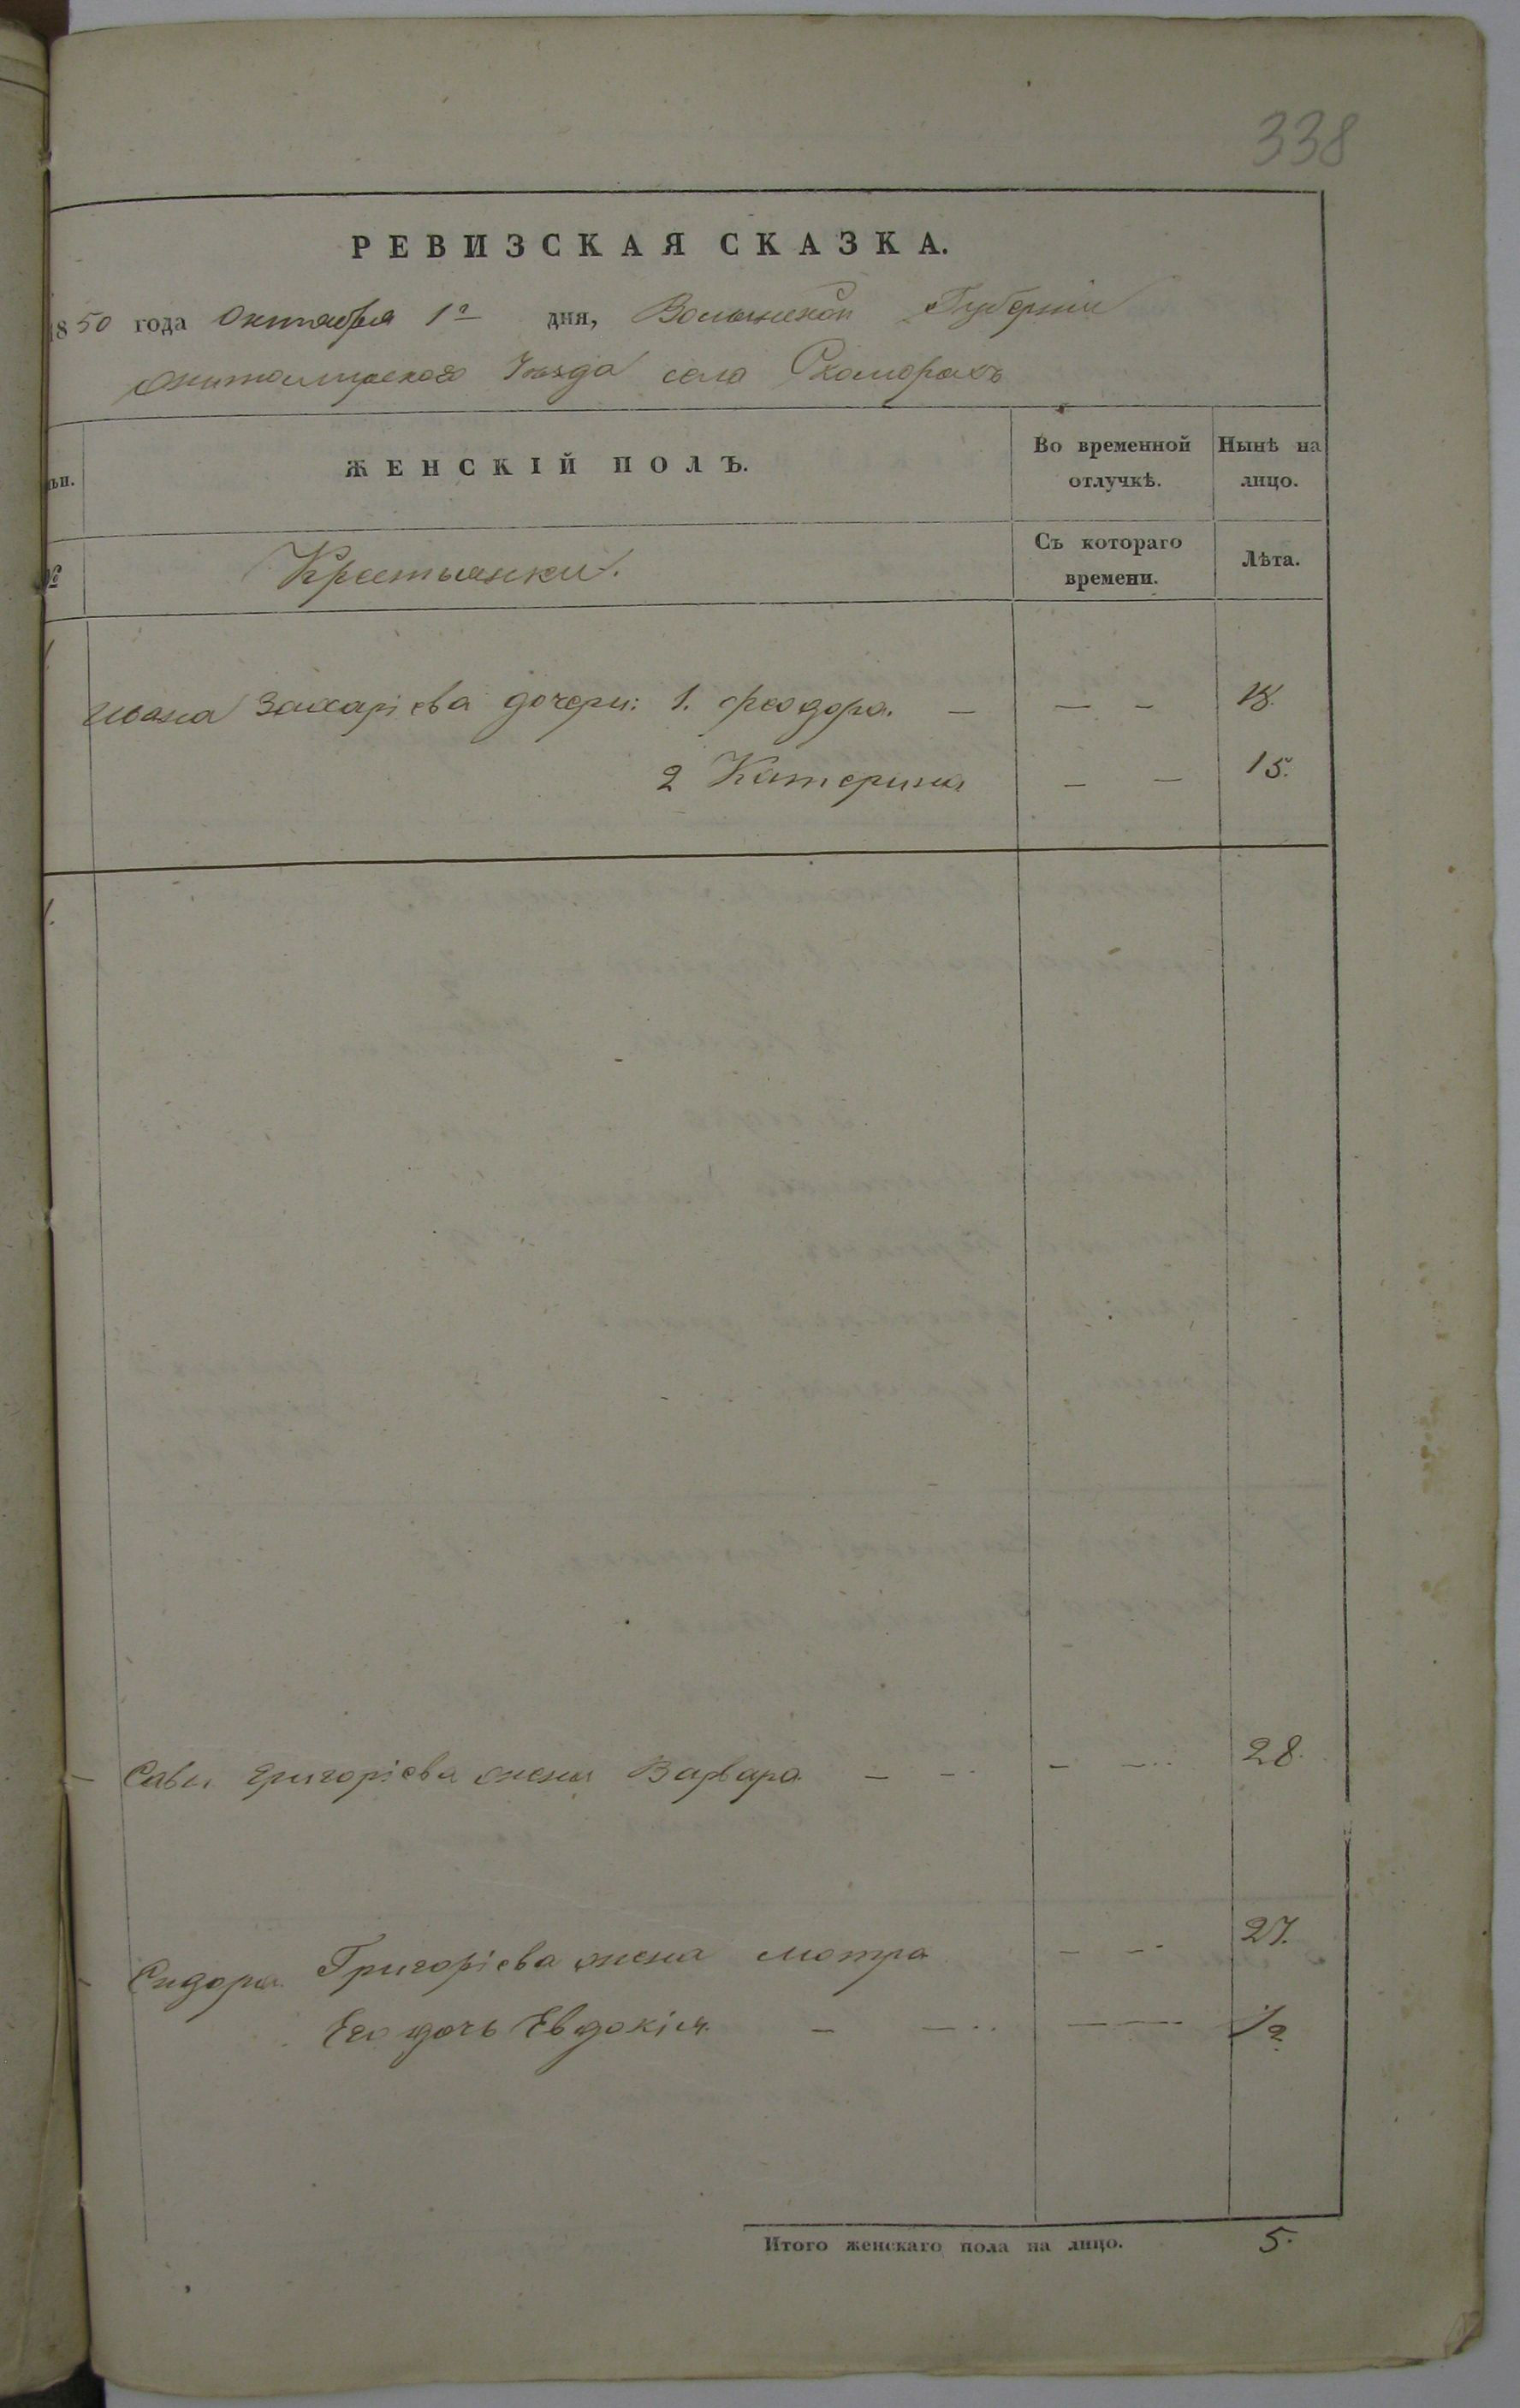 338
РЕВИЗСКАЯ СКАЗКА.
1850 года Октября 1го дня, Волынской Губерніи
Житомирского Уѣзда села Скоморохъ
ЖЕНСКІЙ ПОЛЪ.
Во временной отлучкѣ.
Нынѣ на лицо.
№
Крестьянки.
Съ котораго времени.
Лѣта.
Ивана Захаріева дочери: 1. Феодора. — — — 18.
2 Катерина — — 15.
Савы Григоріева жена Варвара — — — — 28.
Сидора Григоріева жена Мотра — — 27.
Его дочь Евдокія. — — — 1/2
Итого женскаго пола на лицо. 5.